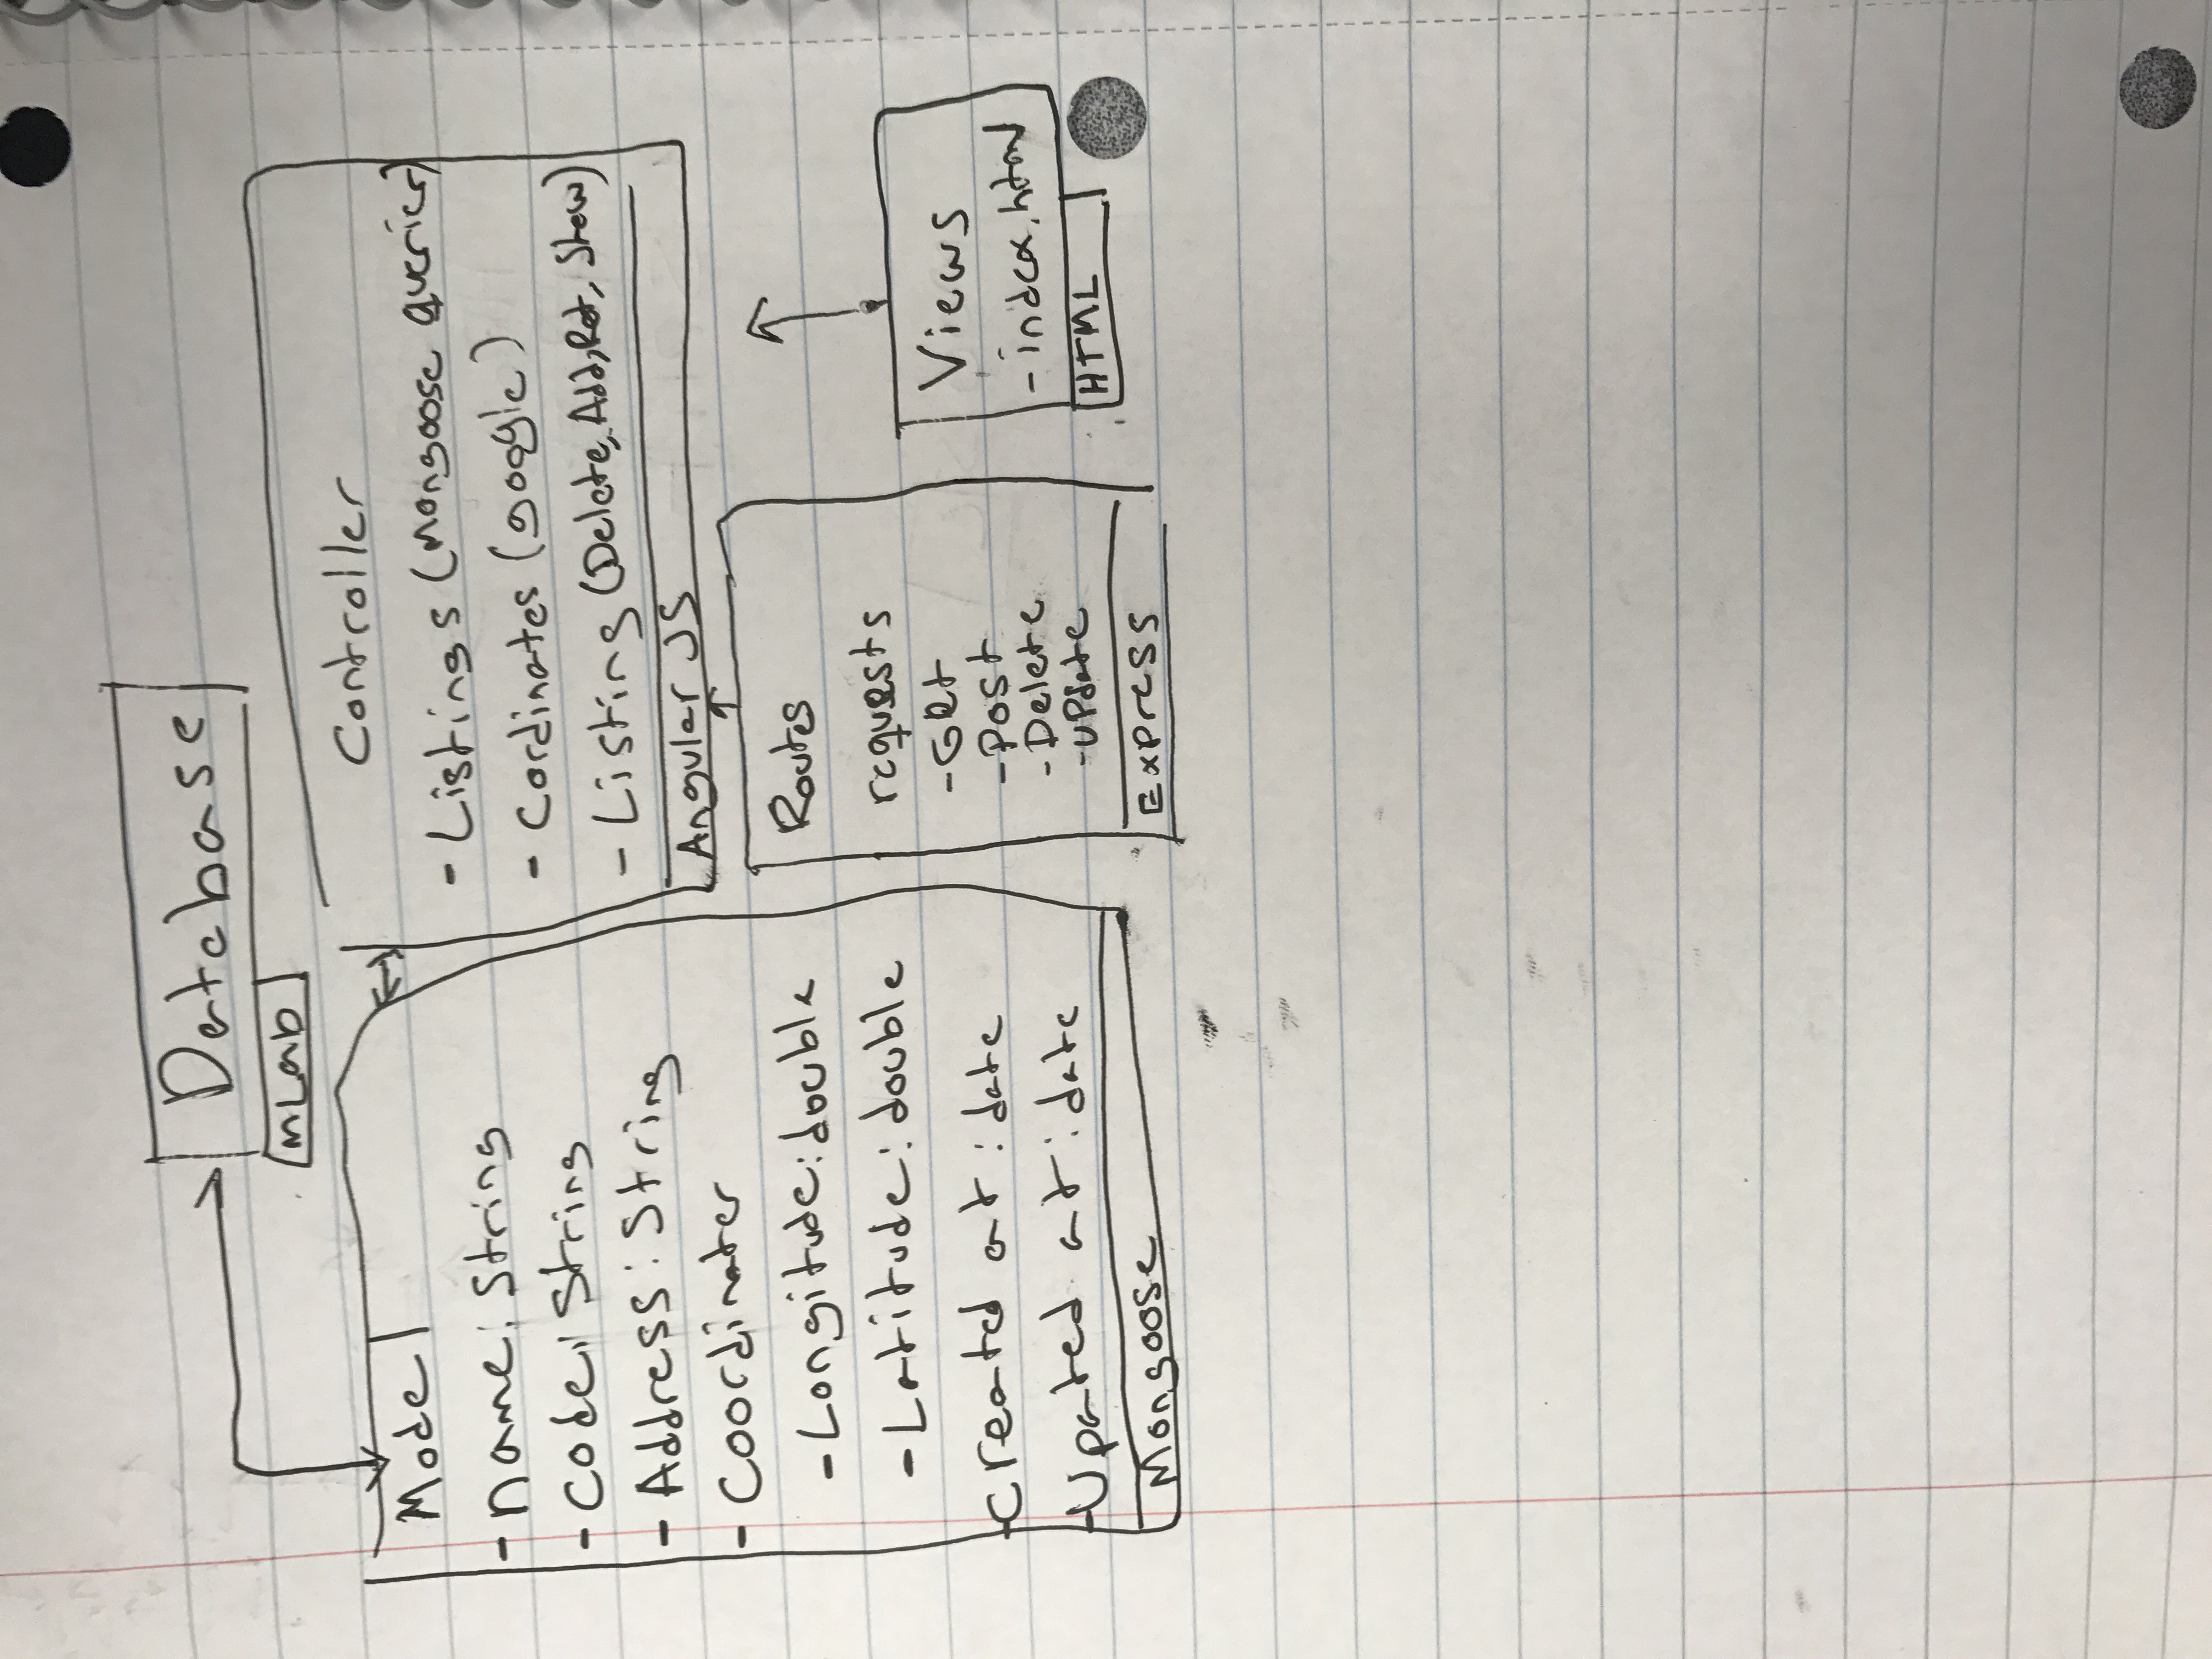 Database
mLab
Model
- name: String
- Code: String
- Address: String
- Coordinates
- Longitude: double
- Latitude: double
- Created at: date
- Upated at: date
Mongoose
Controller
- Listings (Mongoose queries)
- Cordinates (google)
- Listing (Delete, Add, Ret, Show)
Angular JS
Routes
requests
- Get
- Post
- Delete
- Update
Express
Views
- index.html
HTML